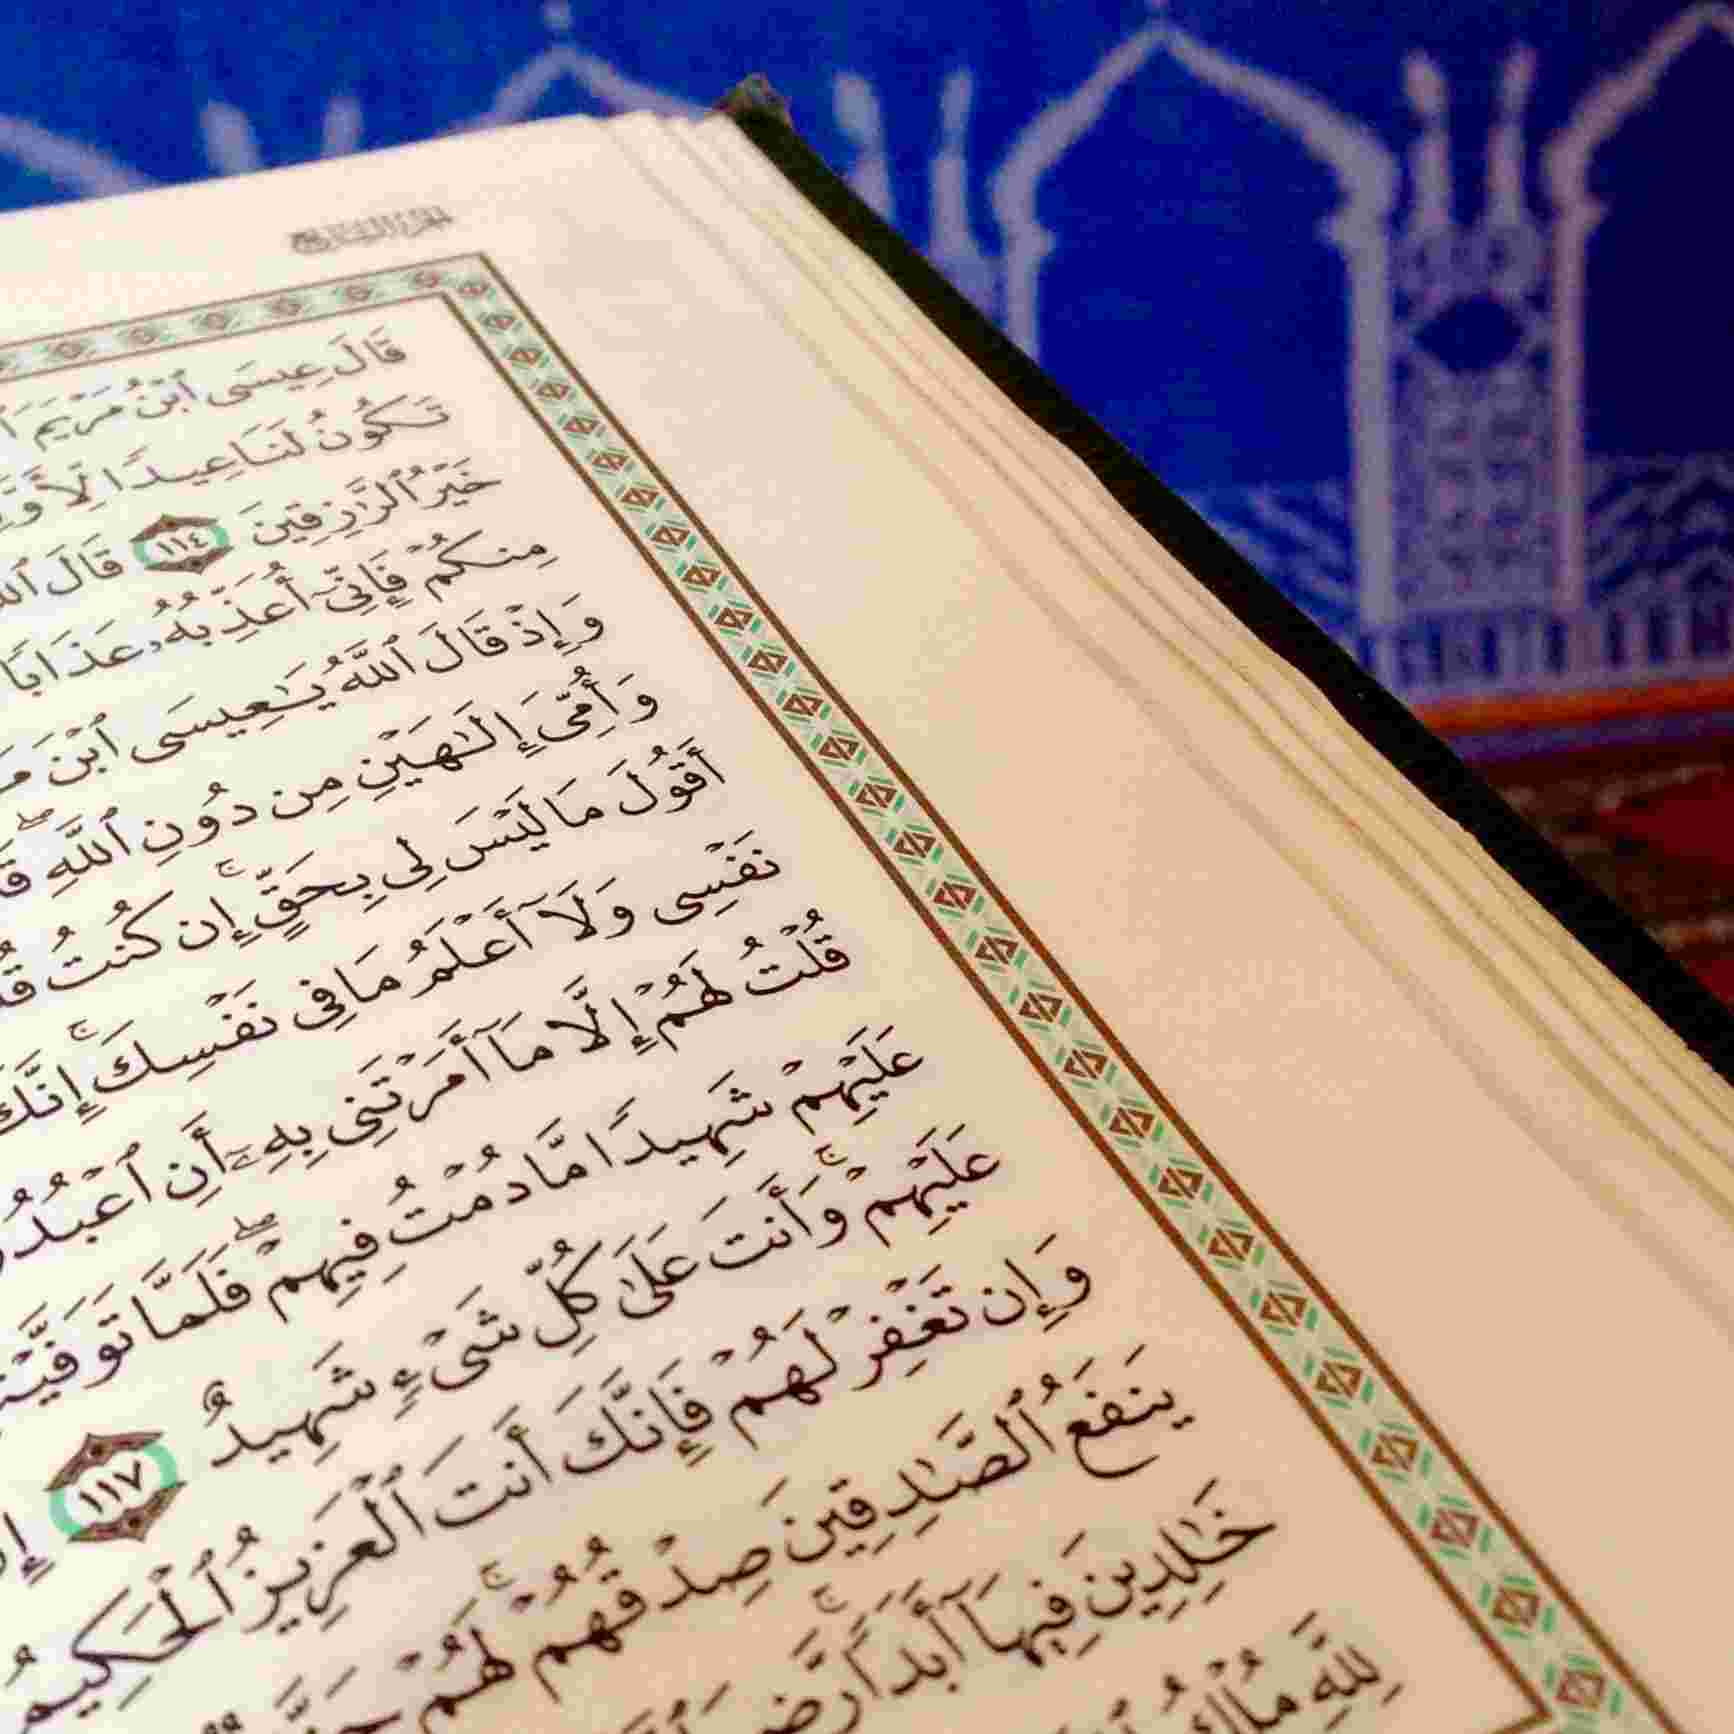 قَالَ عِيسَى ٱبْنُ مَرْيَمَ
تَكُونُ لَنَا عِيدًا لِّأَوَّلِنَا
خَيْرُ ٱلرَّٰزِقِينَ ١١٤ قَالَ ٱللَّهُ
مِنكُمْ فَإِنِّىٓ أُعَذِّبُهُۥ عَذَابًا
وَإِذْ قَالَ ٱللَّهُ يَٰعِيسَى ٱبْنَ
وَأُمِّىَ إِلَٰهَيْنِ مِن دُونِ ٱللَّهِ ۖ
أَقُولَ مَا لَيْسَ لِى بِحَقٍّ ۚ إِن كُنتُ
نَفْسِى وَلَآ أَعْلَمُ مَا فِى نَفْسِكَ ۚ إِنَّكَ
قُلْتُ لَهُمْ إِلَّا مَآ أَمَرْتَنِى بِهِۦٓ أَنِ ٱعْبُدُوا۟
عَلَيْهِمْ شَهِيدًا مَّا دُمْتُ فِيهِمْ ۖ فَلَمَّا تَوَفَّيْتَنِى
عَلَيْهِمْ ۚ وَأَنتَ عَلَىٰ كُلِّ شَىْءٍ شَهِيدٌ ١١٧
وَإِن تَغْفِرْ لَهُمْ فَإِنَّكَ أَنتَ ٱلْعَزِيزُ ٱلْحَكِيمُ
يَنفَعُ ٱلصَّٰدِقِينَ صِدْقُهُمْ ۚ لَهُمْ
خَٰلِدِينَ فِيهَآ أَبَدًا ۚ
لِلَّهِ مُلْكُ